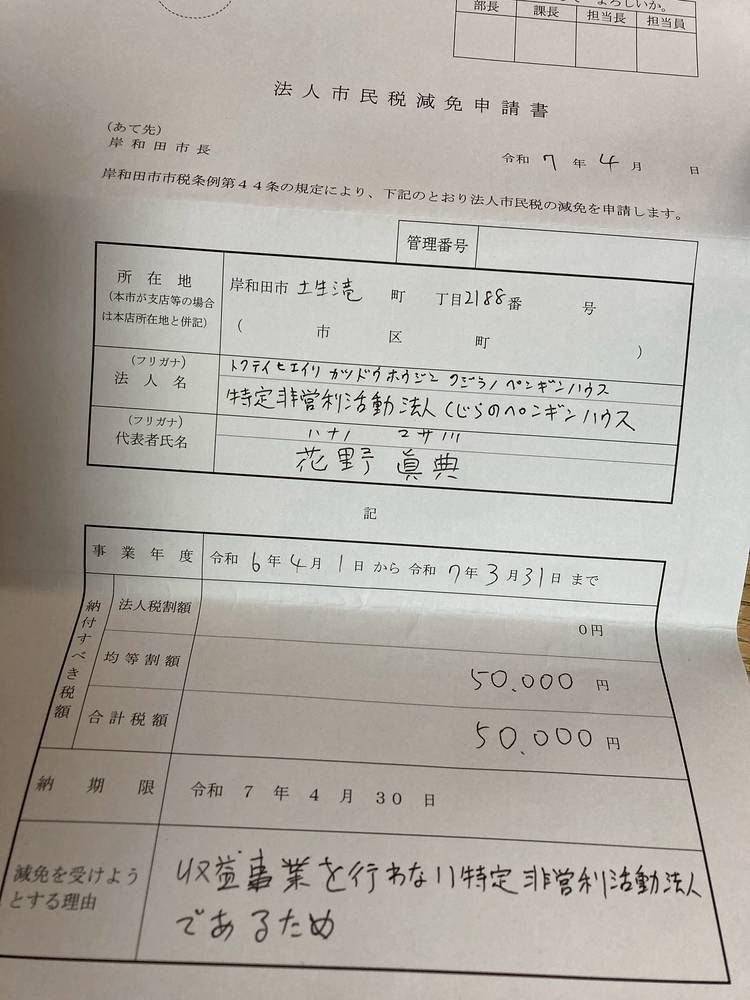 よろしいか。
部長 課長 担当長 担当員
法人市民税減免申請書
(あて先)
岸和田市長
令和 7 年 4 月 日
岸和田市市税条例第44条の規定により、下記のとおり法人市民税の減免を申請します。
管理番号
所在地
(本市が支店等の場合
は本店所在地と併記)
岸和田市 土生滝 町 丁目2188番 号
( 市 区 町 )
(フリガナ) トクテイヒエイリ カツドウホウジン クジラノ ペンギンハウス
法人名 特定非営利活動法人くじらのペンギンハウス
(フリガナ) ハナノ マサノリ
代表者氏名 花野 眞典
記
事業年度 令和 6年 4月 1日 から 令和 7年 3月 31日 まで
納付すべき税額
法人税割額 0円
均等割額 50.000 円
合計税額 50.000 円
納期限 令和 7 年 4 月 30 日
減免を受けよう
とする理由
収益事業を行わない特定非営利活動法人
であるため